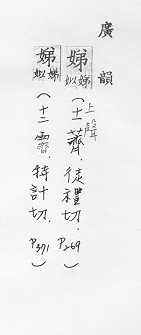 廣韻
娣 姒娣
(十一薺.徒禮切.P269)
上聲
娣 姒娣
(十二霽.特計切.P371)